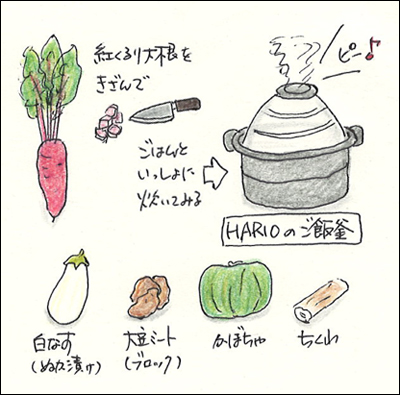 紅くるり大根を
きざんで
ピー♪
ごはんと
いっしょに
炊いてみる
HARIOのご飯釜
白なす
(ぬか漬け)
大豆ミート
(ブロック)
かぼちゃ
ちくわ